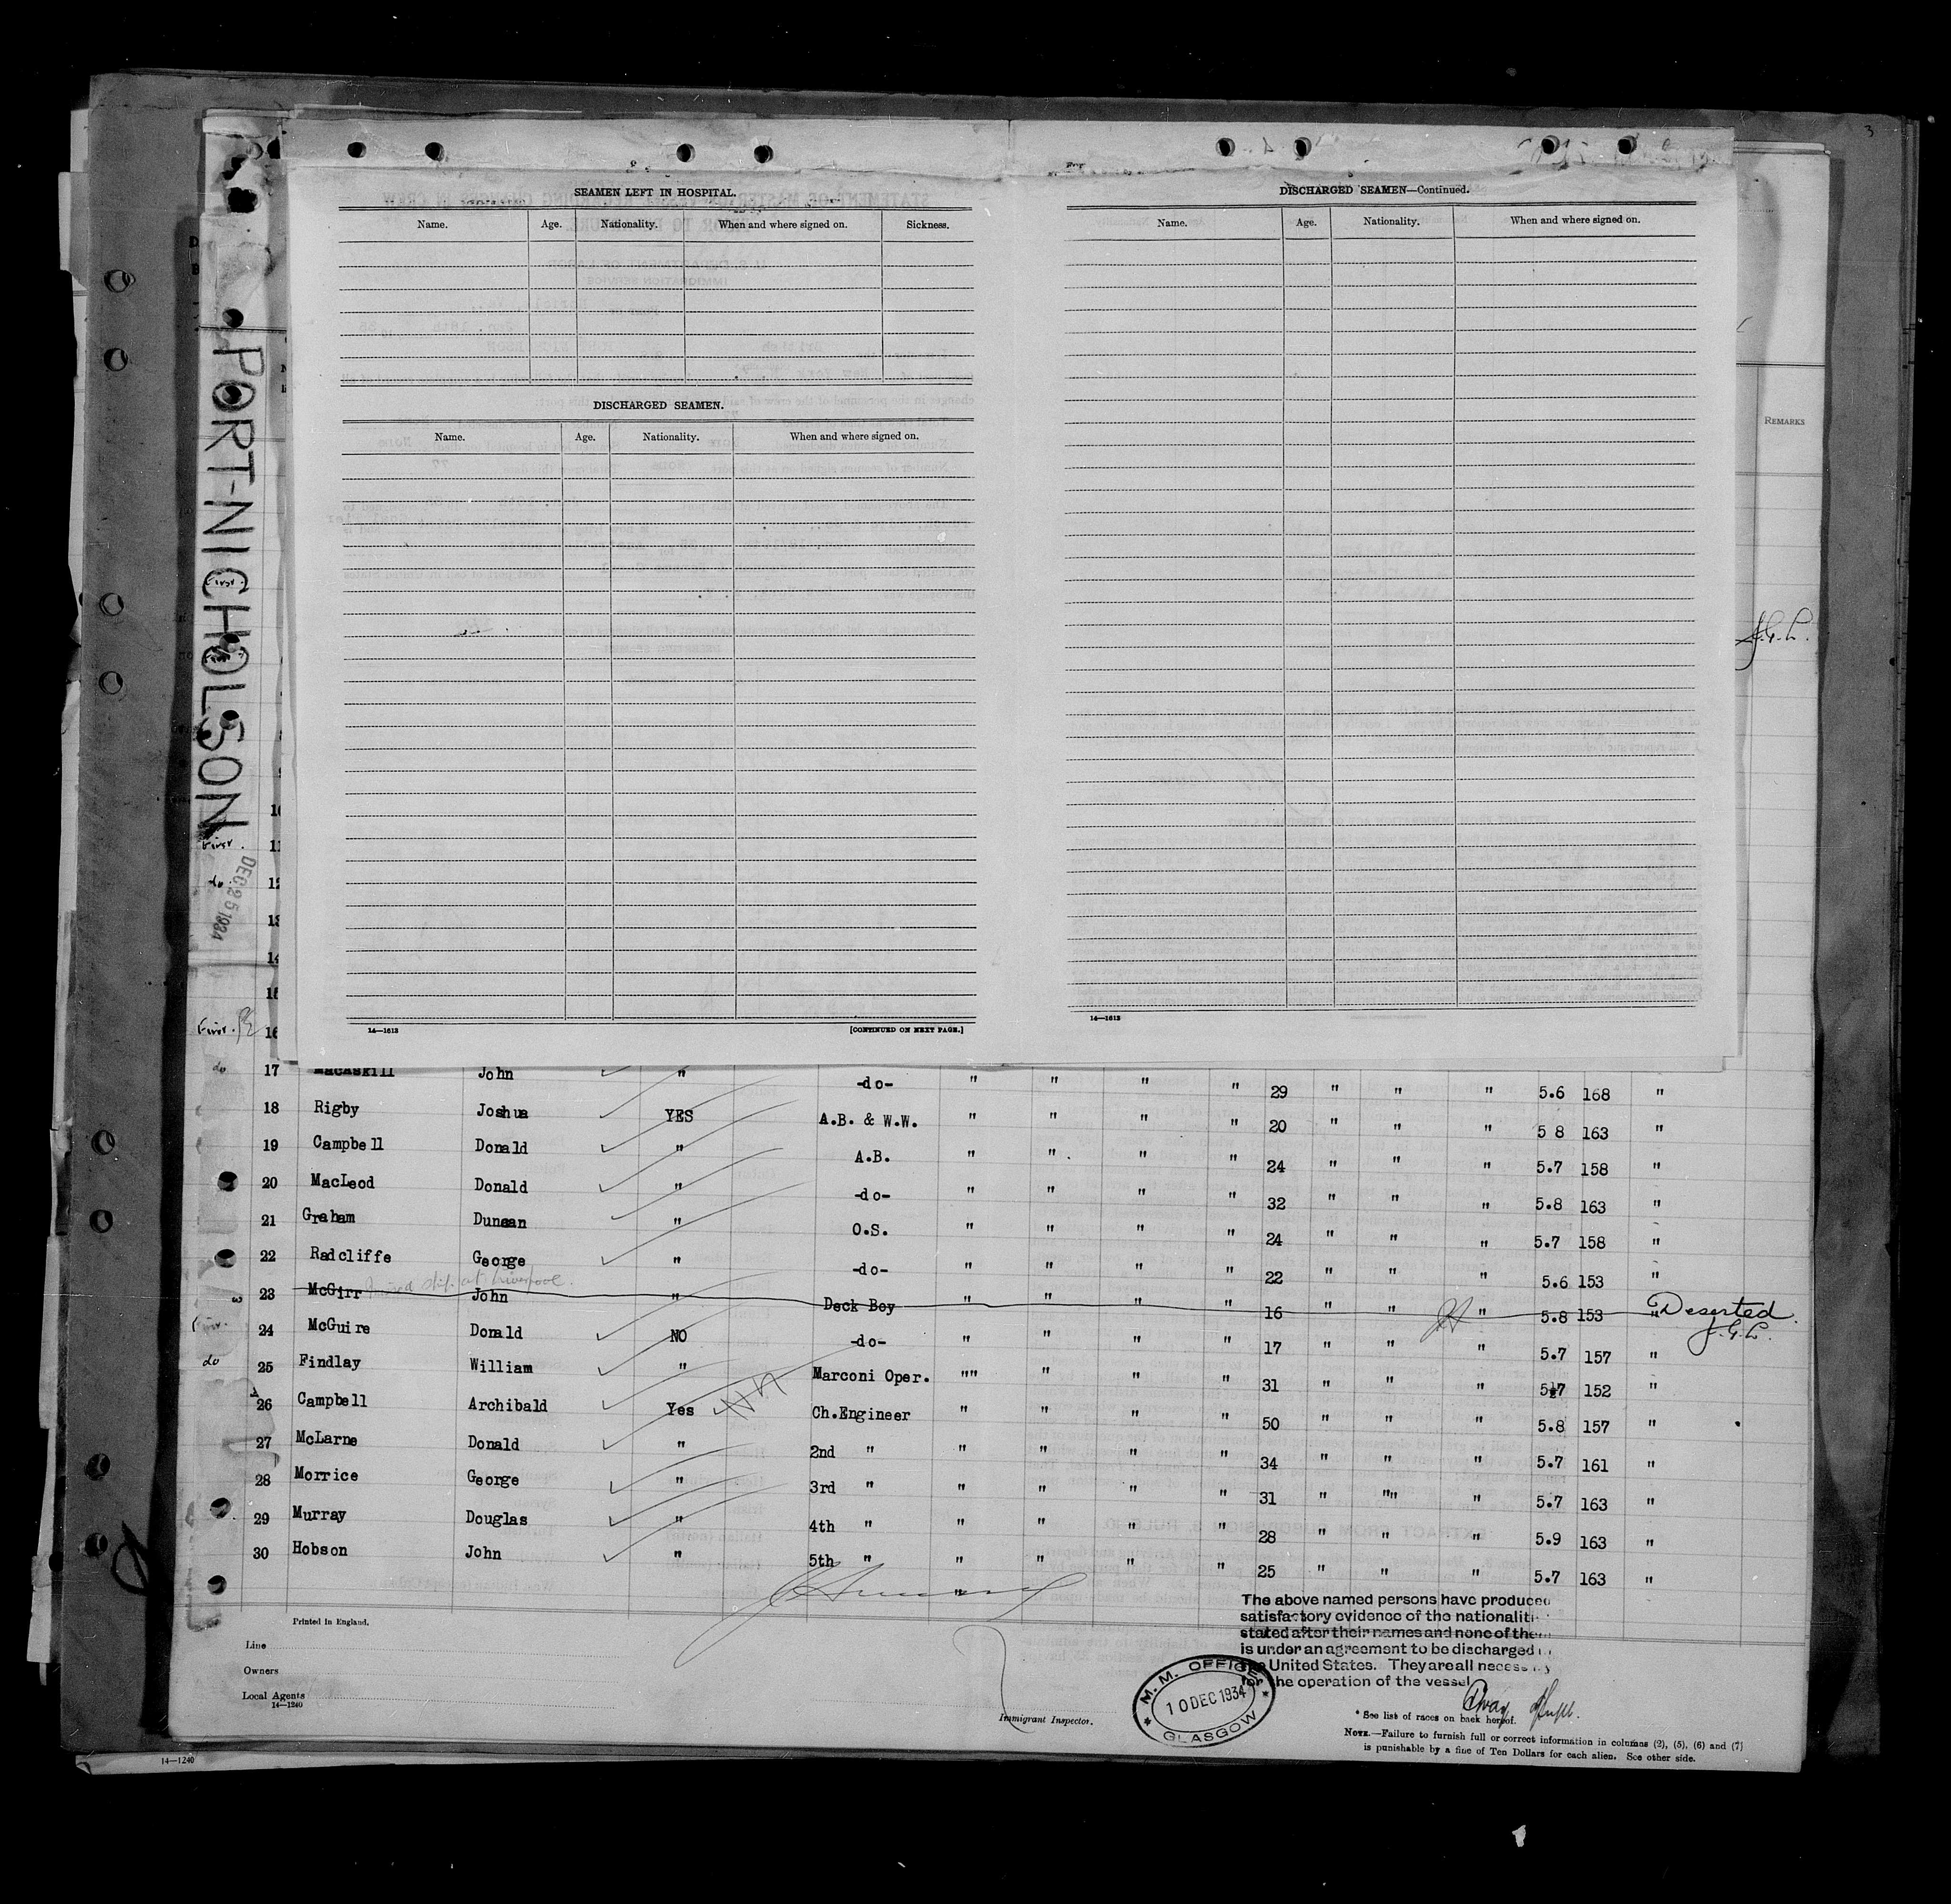 3
PORT-NICHOLSON
DEC 25 1934
SEAMEN LEFT IN HOSPITAL.
Name. Age. Nationality. When and where signed on. Sickness.
DISCHARGED SEAMEN.
Name. Age. Nationality. When and where signed on.
14—1613 [CONTINUED ON NEXT PAGE.]
DISCHARGED SEAMEN—Continued.
Name. Age. Nationality. When and where signed on.
14—1613
REMARKS
J.G.L.
First.
First.
First. 11
do 12
13
14
15
First. 16
do 17 MacAskill John " -do- " " " " 29 " " " 5.6 168 "
18 Rigby Joshua YES A.B. & W.W. " " " " 20 " " " 5 8 163 "
19 Campbell Donald " A.B. " " " " 24 " " " 5.7 158 "
20 MacLeod Donald " -do- " " " " 32 " " " 5.8 163 "
21 Graham Duncan " O.S. " " " " 24 " " " 5.7 158 "
22 Radcliffe George " -do- " " " " 22 " " " 5.6 153 "
Joined ship at Liverpool.
23 McGirr John " Deck Boy " " " " 16 " " " 5.8 153 " Deserted.
J.G.L.
First. 24 McGuire Donald NO -do- " " " " 17 " " " 5.7 157 "
do 25 Findlay William " Marconi Oper. "" " " " 31 " " " 5.7 152 "
26 Campbell Archibald Yes Ch.Engineer " " " " 50 " " " 5.8 157 "
27 McLarne Donald " 2nd " " " " " 34 " " " 5.7 161 "
28 Morrice George " 3rd " " " " " 31 " "" " 5.7 163 "
29 Murray Douglas " 4th " " " " " 28 " " " 5.9 163 "
30 Hobson John " 5th " " " " " 25 " " " 5.7 163 "
"
Printed in England.
Line
Owners
Local Agents
14—1240
Immigrant Inspector.
M. M. OFFICE
10 DEC 1934
GLASGOW
The above named persons have produced
satisfactory evidence of the nationaliti
stated after their names and none of them
is under an agreement to be discharged
the United States. They are all necessary
for the operation of the vessel
* See list of races on back hereof.
NOTE.—Failure to furnish full or correct information in columns (2), (5), (6) and (7)
is punishable by a fine of Ten Dollars for each alien. See other side.
14—1240